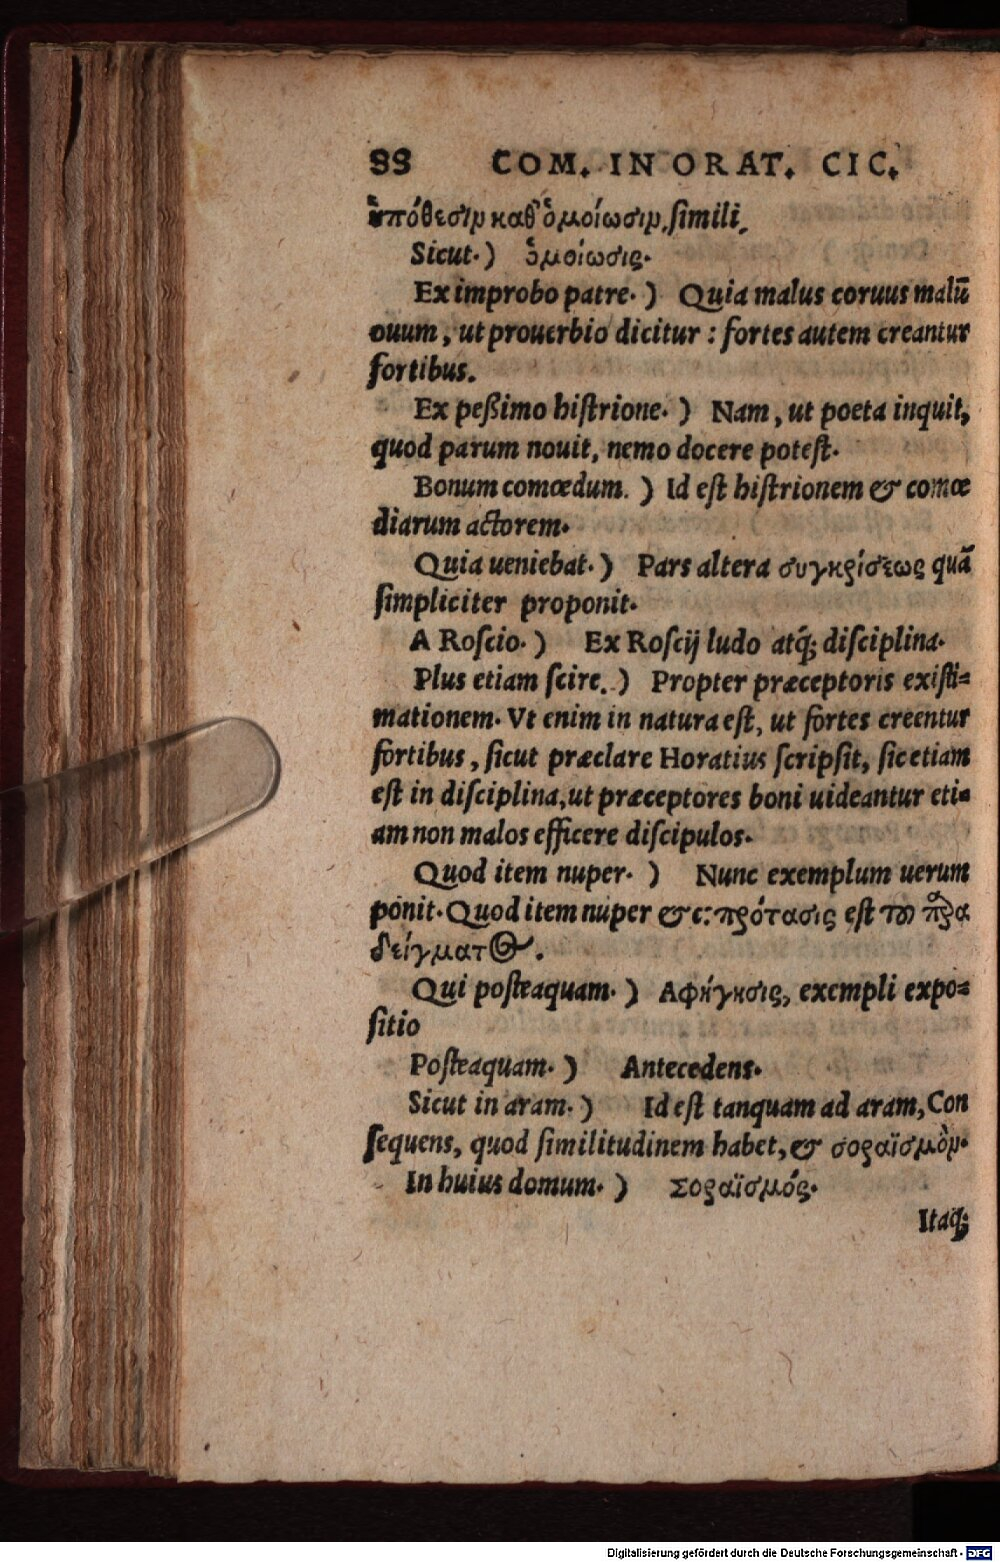 88 COM. IN ORAT. CIC.
ὑπόθεσιν καθ' ὁμοίωσιν, ſimili,
Sicut.) ὁμοίωσις.
Ex improbo patre.) Quia malus coruus malū
ouum, ut prouerbio dicitur: fortes autem creantur
fortibus.
Ex peßimo hiſtrione.) Nam, ut poeta inquit,
quod parum nouit, nemo docere poteſt.
Bonum comœdum.) Id eſt hiſtrionem & comœ
diarum actorem.
Quia ueniebat.) Pars altera συγκρίσεως quā
ſimpliciter proponit.
A Roſcio.) Ex Roſcij ludo atq́; diſciplina.
Plus etiam ſcire.) Propter præceptoris exiſti=
mationem. Vt enim in natura eſt, ut fortes creentur
fortibus, ſicut præclare Horatius ſcripſit, ſic etiam
eſt in diſciplina, ut præceptores boni uideantur eti=
am non malos efficere diſcipulos.
Quod item nuper.) Nunc exemplum uerum
ponit. Quod item nuper &c: πρότασις eſt τοῦ παρα
δείγματος.
Qui poſteaquam.) Αφήγησις, exempli expo=
ſitio
Poſteaquam.) Antecedens.
Sicut in aram.) Id eſt tanquam ad aram, Con
ſequens, quod ſimilitudinem habet, & σοραϊσμὸν.
In huius domum.) Σοραϊσμός.
Itaq́;
Digitalisierung gefördert durch die Deutsche Forschungsgemeinschaft - DFG